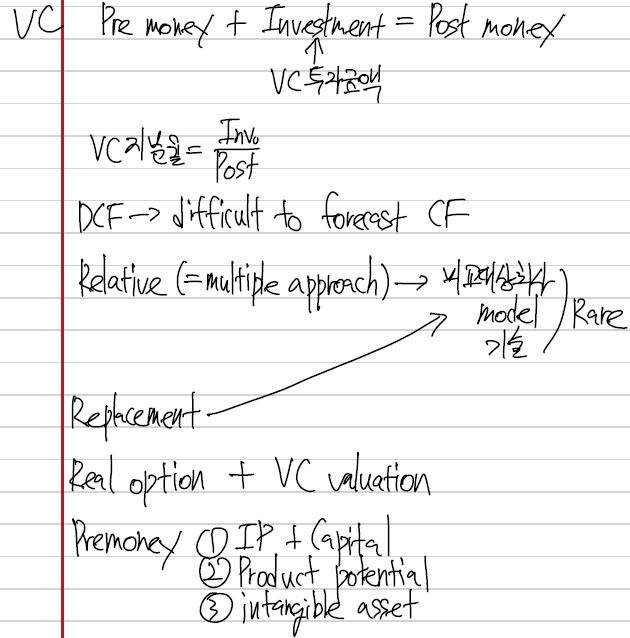 VC Pre money + Investment = Post money
↑
VC 투자금액
VC 지분율 = Inv. / Post
DCF → difficult to forecast CF
Relative (=multiple approach) → 비교대상회사
model
기술
Rare
Replacement
Real option + VC valuation
Premoney ① IP + Capital
② Product potential
③ intangible asset